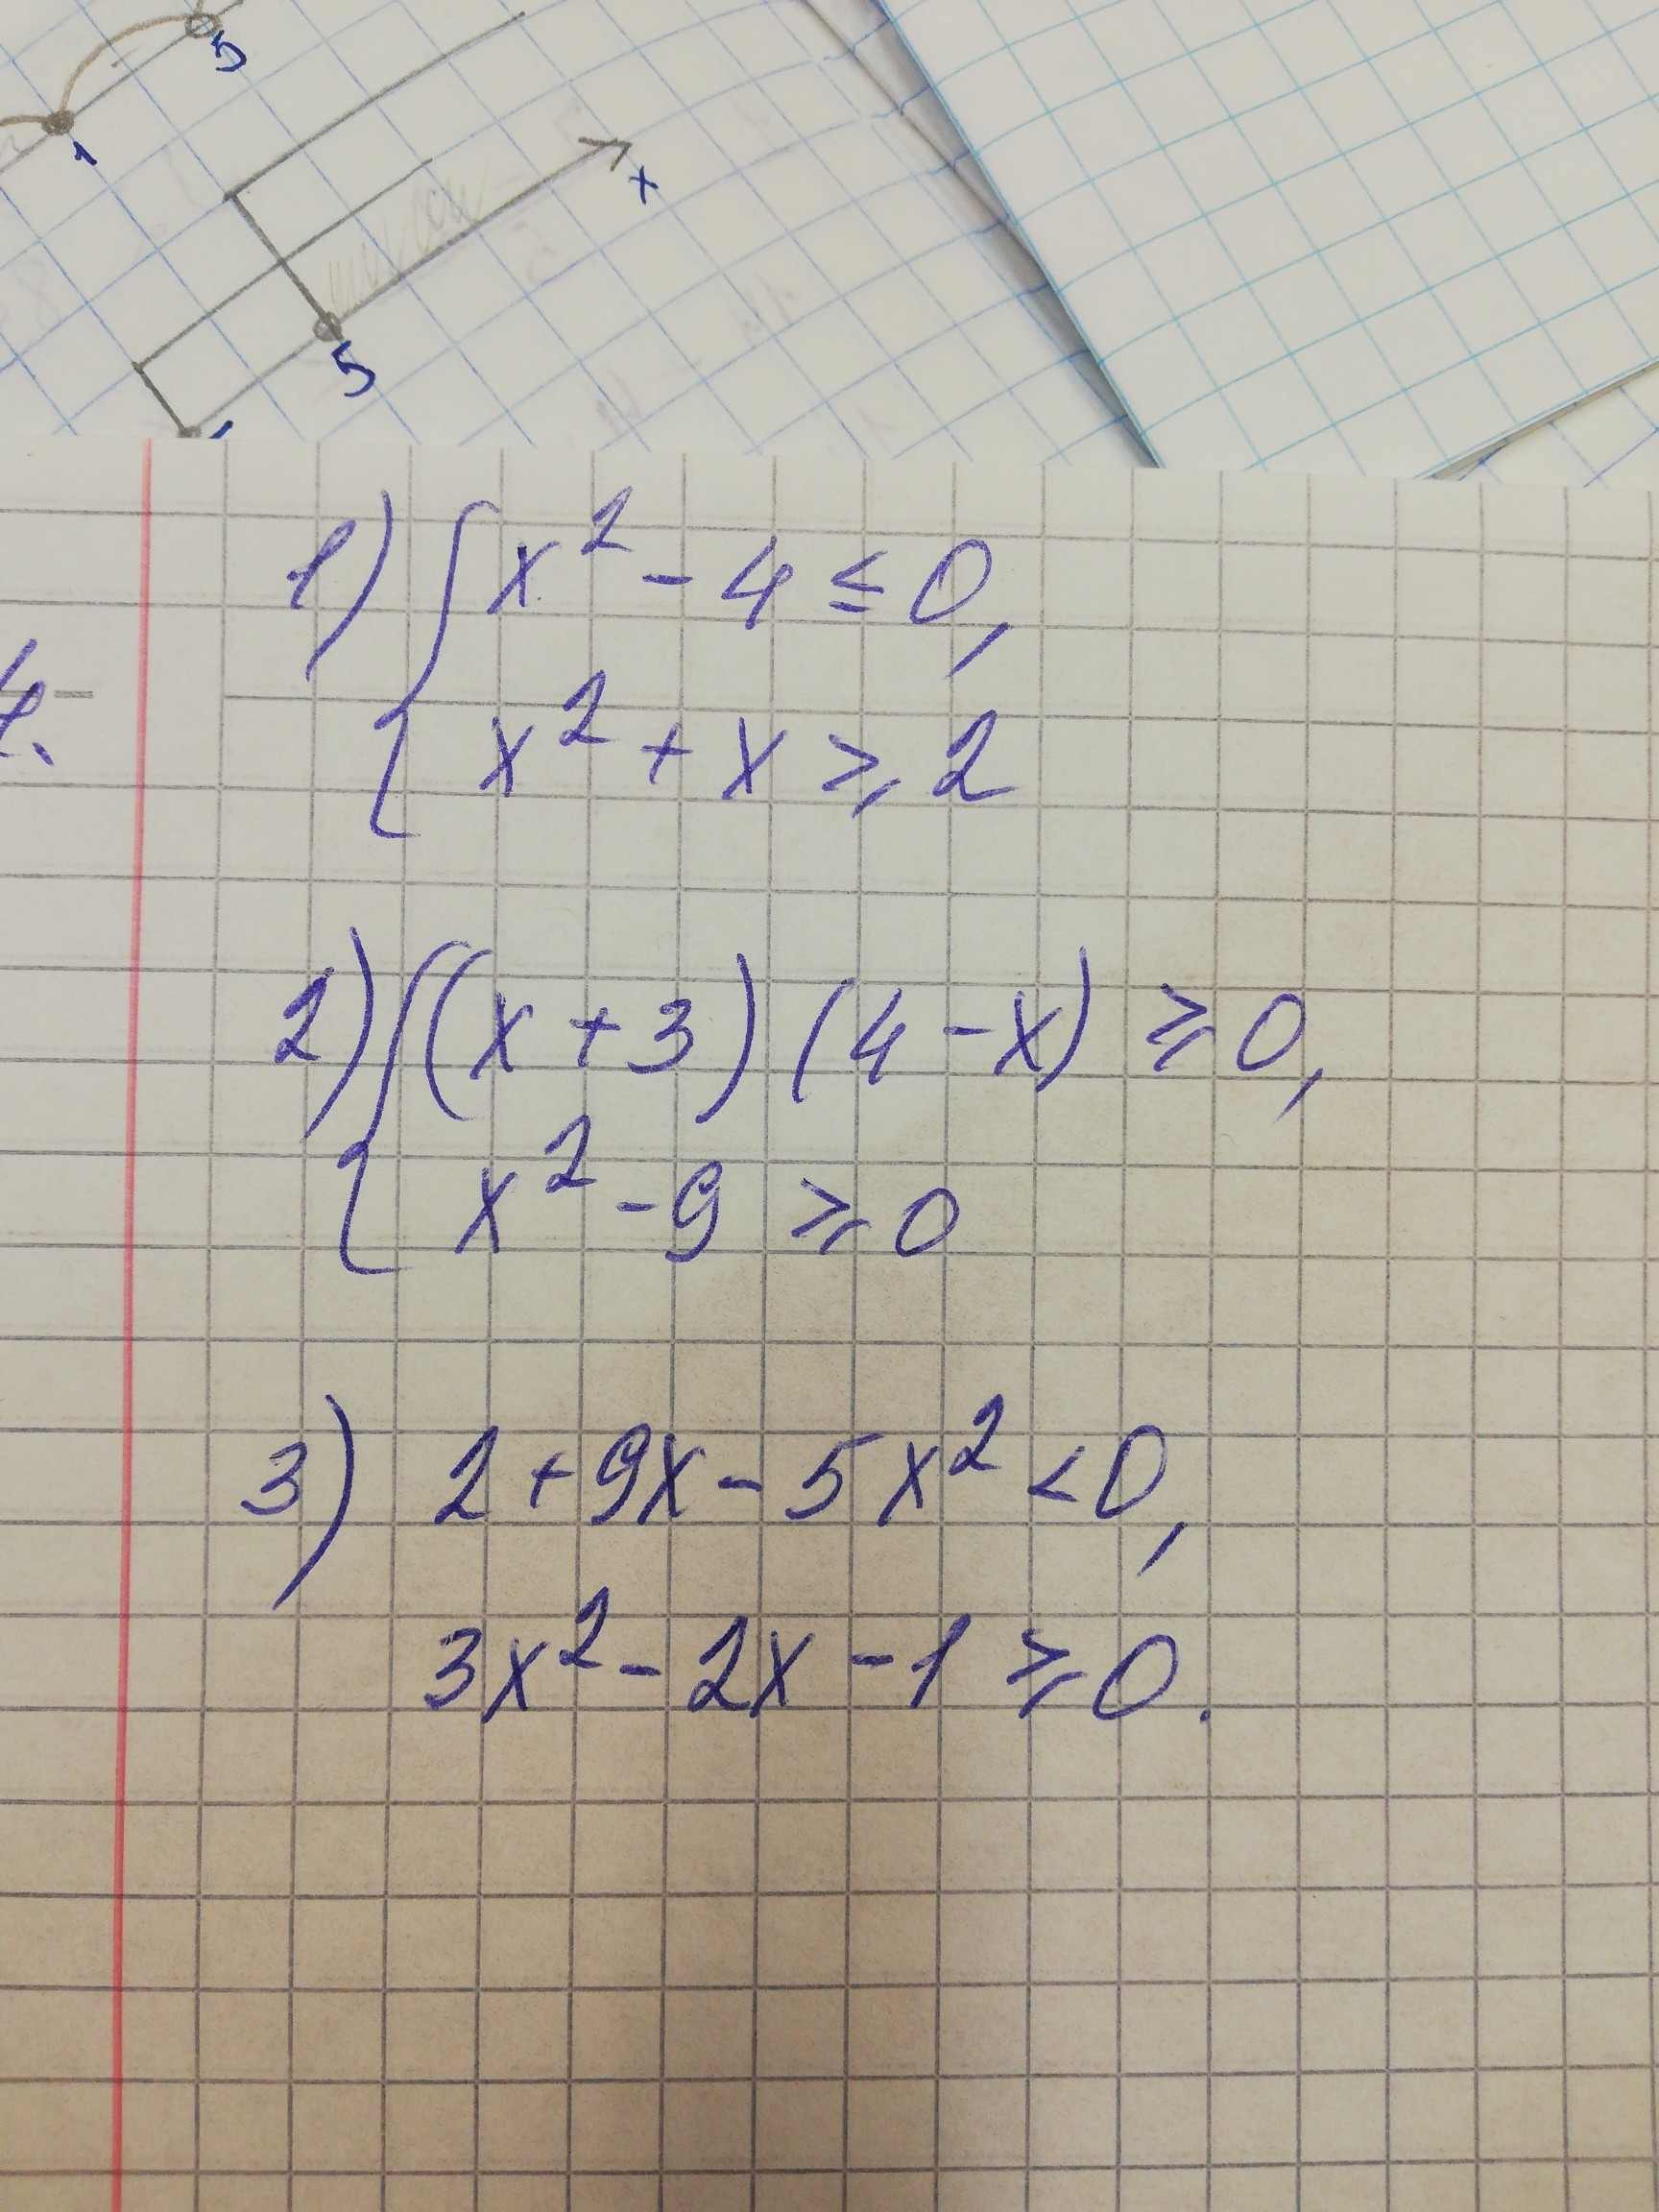 5
1
x
5
1) { x² - 4 ≤ 0,
x² + x ≥ 2
2) { (x + 3) (4 - x) ≥ 0,
x² - 9 ≥ 0
3) 2 + 9x - 5x² < 0,
3x² - 2x - 1 ≥ 0.